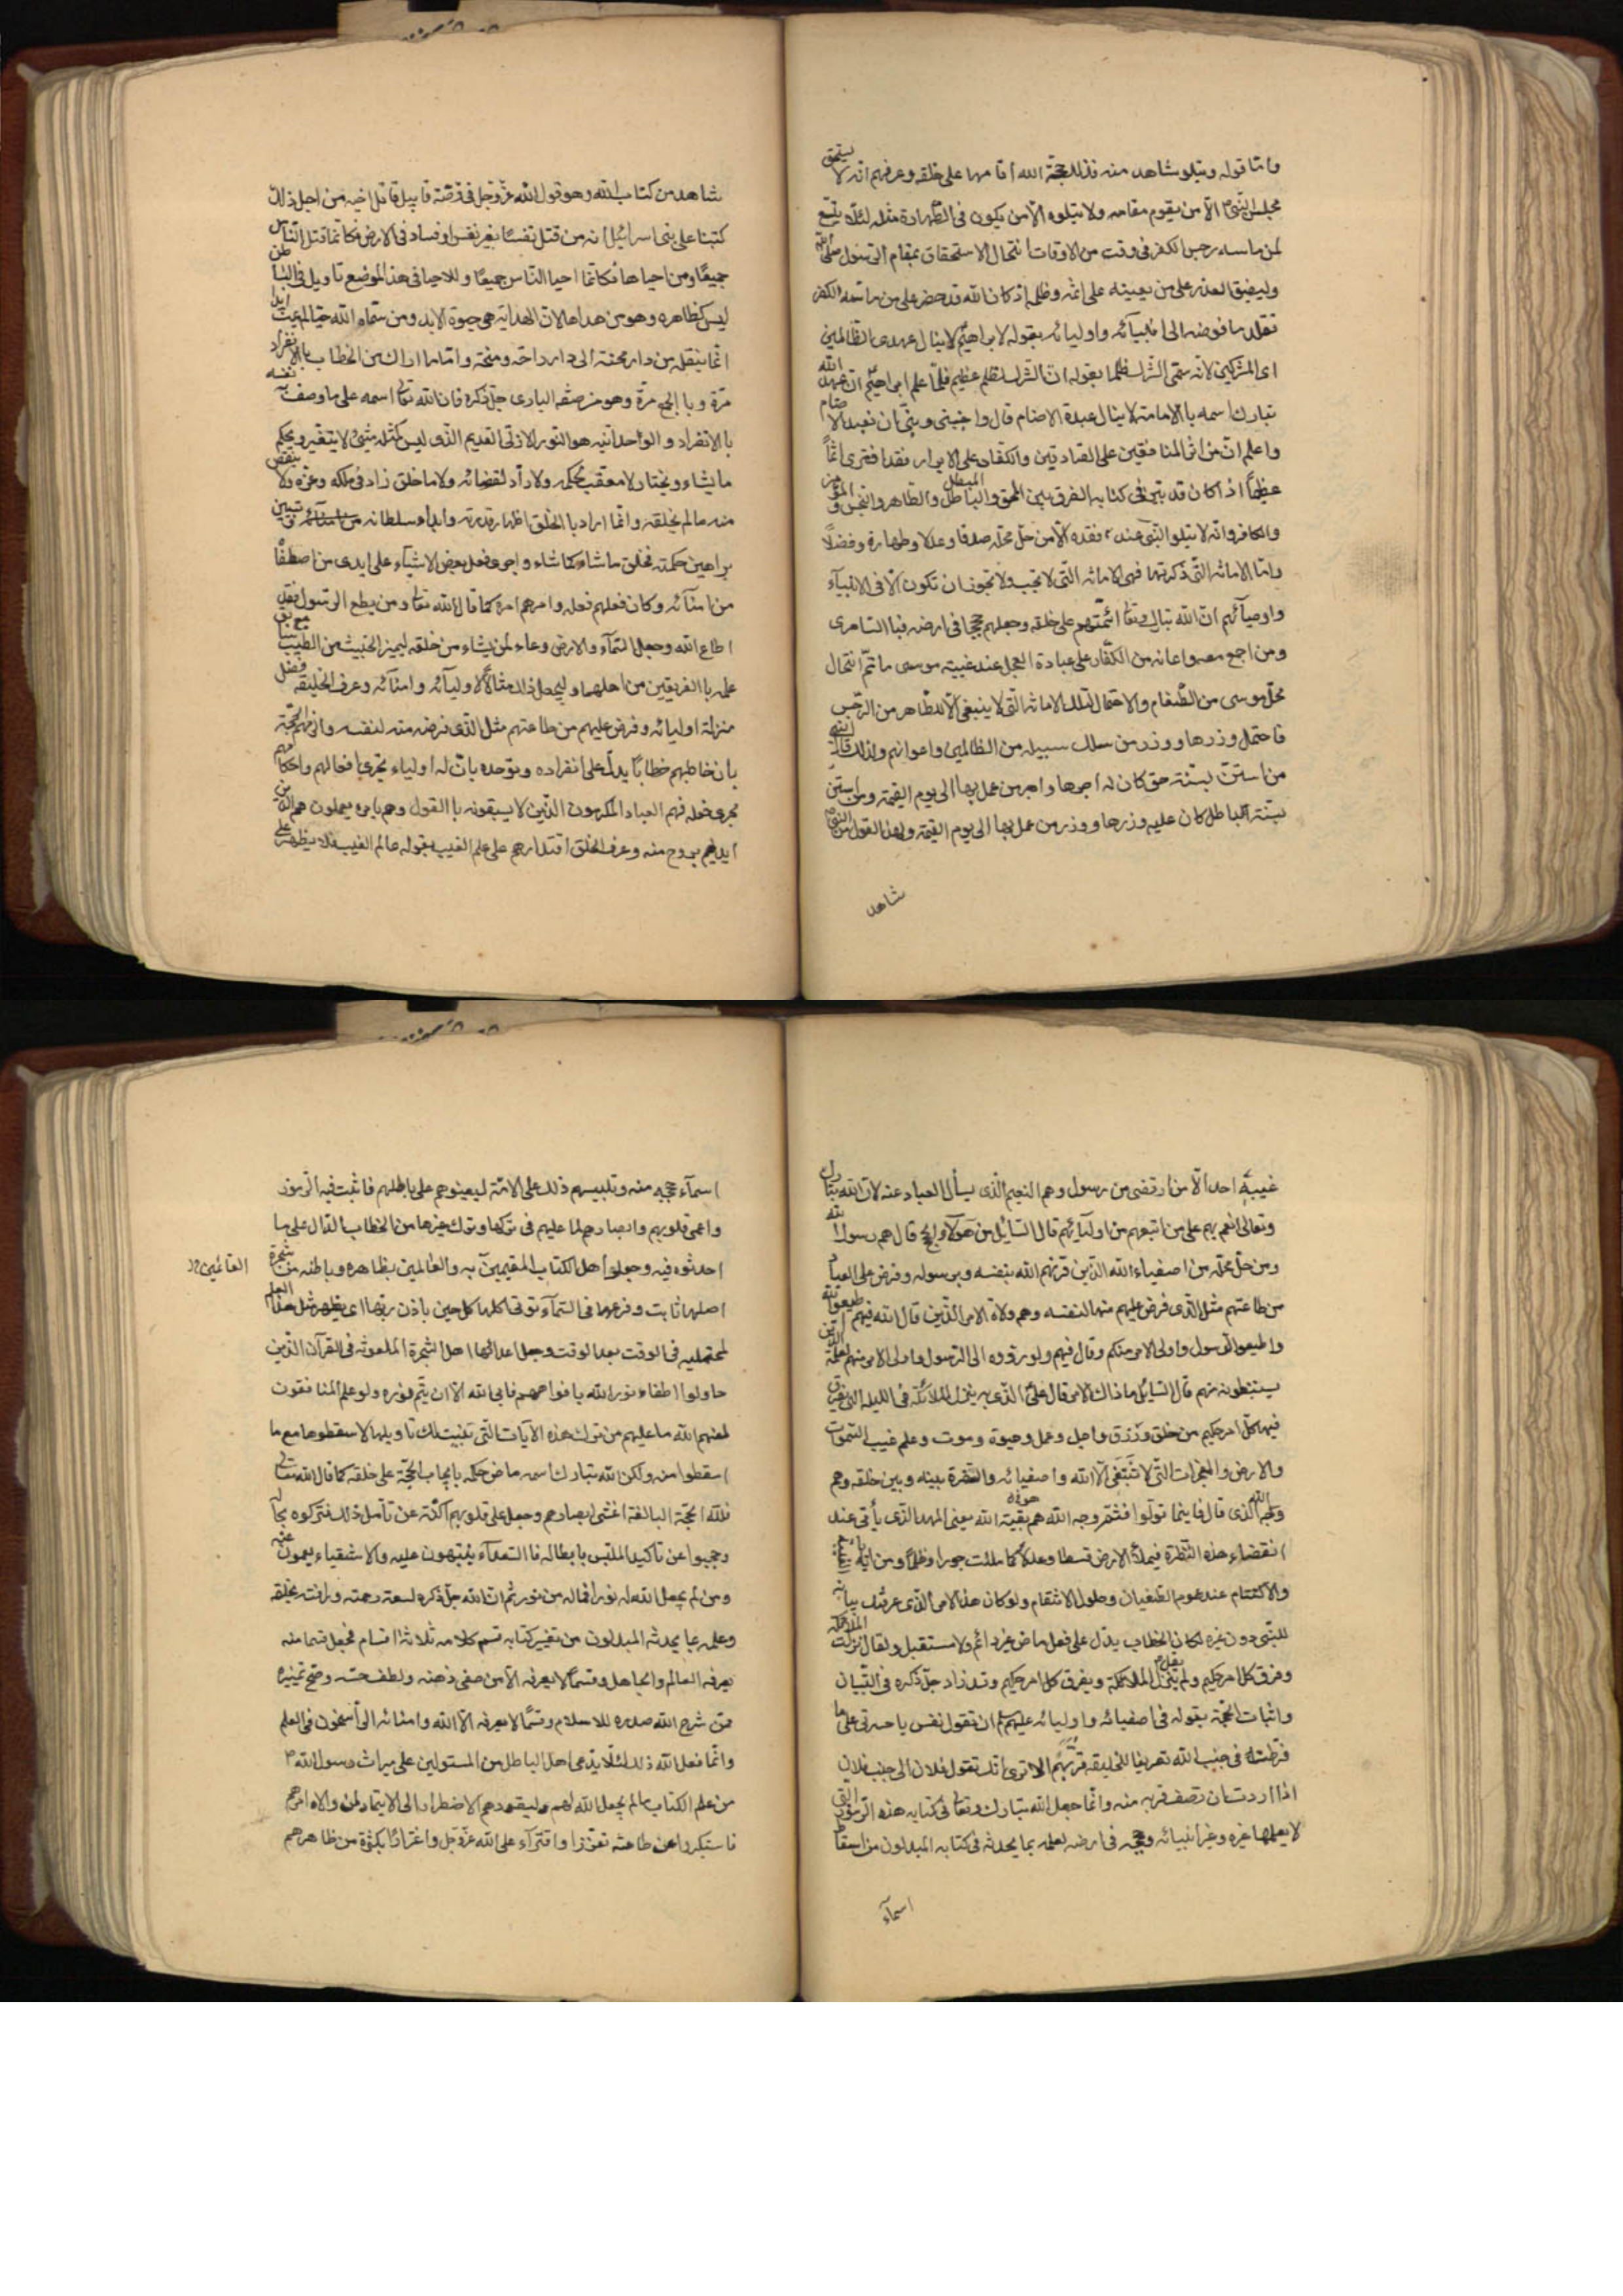 واما قوله ويتلو شاهد منه فذلك حجة الله اقامها على خلقه وعرفهم انه لا يستحق
مجلس النبي ص الا من يقوم مقامه ولا يتلوه الا من يكون في الطهارة مثله لئلا يتسع
لمن ماسه رجس الكفر في وقت من الاوقات انتحال الاستحقاق بمقام الرسول صلى الله
وليضيق العذر على من يعينه على اثمه وظلمه اذ كان الله قد حضر على من ماسه الكفر
تقلد ما فوضه الى انبيائه واوليائه بقوله لابراهيم لا ينال عهدى الظالمين
اى المشركين لانه سمى الشرك ظلما بقوله ان الشرك لظلم عظيم فلما علم ابراهيم ان عهد الله
تبارك اسمه بالامامة لا ينال عبدة الاصنام قال واجنبنى وبنى ان نعبد الاصنام
واعلم ان من اثر المنافقين على الصادقين والكفار على الابرار فقد افترى اثماً
عظيماً اذ كان قد بين فى كتابه الفرق بين المحق والمبطل والطاهر والنجس والمؤمن
والكافر وانه لا يتلو النبى عند فقده الا من حل محله صدقا وعدلا وطهارة وفضلاً
واما الامانة التى ذكرتها فهى الامانة التى لا تجب ولا تجوز ان تكون الا فى الانبيآء
واوصيآئهم ان الله تبارك وتعا ائتمنهم على خلقه وجعلهم حججا فى ارضه فبالسامرى
ومن اجمع معه واعانه من الكفار على عبادة العجل عند غيبة موسى ما تم انتحال
محل موسى من الطغام والاحتمال لتلك الامانة التى لا ينبغى الا لطاهر من الرجس
فاحتمل وزرها ووزر من سلك سبيله من الظالمين واعوانهم ولذلك قال النبى
من استن بسنة حق كان له اجرها واجر من عمل بها الى يوم القيمة ومن استن
بسنة الباطل كان عليه وزرها ووزر من عمل بها الى يوم القيمة ولهذا القول من النبى ص
شاهد
شاهد من كتاب الله وهو قول الله عز وجل فى قصة قابيل قاتل اخيه من اجل ذلك
كتبنا على بنى اسرائيل انه من قتل نفسًا بغير نفس او فساد فى الارض فكانما قتل الناس
جميعًا ومن احياها فكانما احيا الناس جميعًا وللاحيا فى هذا الموضع تاويل فى الباطن
ليس كظاهره وهو من هداها لان الهداية هى حيوة الابد ومن سماه الله حيًا لم يمت ابدا
انما ينقله من دار محنة الى دار راحة ومنحة واما ما اراك من الخطاب بالانفراد
مرة وبالجمع مرة وهو من صفة البارى جل ذكره فان الله تعا اسمه على ما وصف به نفسه
بالانفراد والواحدانيه هو النور الازلى القديم الذى ليس كمثله شئ لا يتغير ويحكم
ما يشاء ويختار لا معقب لحكمه ولا راد لقضائه ولا ما خلق زاد فى ملكه وعزه ولا ينقص
منه ما لم يخلقه وانما اراد بالخلق اظهار قدرته وابداء سلطانه وتبيين
براهين حكمته فخلق ما شاء كما شاء واجرى فعل بعض الاشيآء على ايدى من اصطفا
من امنآئه وكان فعلهم فعله وامرهم امره كما قال الله تعا ومن يطع الرسول فقد
اطاع الله وجعل السمآء والارض وعاء لمن يشاء من خلقه ليميز الخبيث من الطيب مع سابق
علمه بالفريقين من اهلهما وليجعل ذلك مثالًا لاوليآئه وامنآئه وعرف الخليقة فضل
منزلة اوليائه وفرض عليهم من طاعتهم مثل الذى فرضه منه لنفسه والزمهم الحجة
بان خاطبهم خطابًا يدل على انفراده وتوحده بان له اولياء تجرى افعالهم واحكامهم
مجرى فعله فهم العباد المكرمون الذين لا يسبقونه بالقول وهم بامره يعملون هم الذين
ايدهم بروح منه وعرف الخلق اقتدارهم على علم الغيب بقوله عالم الغيب فلا يظهر على
غيبه احدا الا من ارتضى من رسول وهم النعيم الذى يسأل العباد عنه لان الله تبارك
وتعالى انعم بهم على من اتبعهم من اوليآئهم قال السايل من هؤلاء الحجج قال هم رسول الله
ومن حل محله من اصفياء الله الذين قرنهم الله بنفسه وبرسوله وفرض على العباد
من طاعتهم مثل الذى فرض عليهم منها لنفسه وهم ولاة الامر الذين قال الله فيهم اطيعوا الله
واطيعوا الرسول واولى الامر منكم وقال فيهم ولو ردوه الى الرسول واولى الامر منهم لعلمه الذين
يستنبطونه منهم قال السايل ما ذاك الامر قال على الذى به ينزل الملائكة فى الليلة التى يفرق
فيها كل امر حكيم من خلق ورزق واجل وعمل وحيوة وموت وعلم غيب السموات
والارض والمعجزات التى لا تنبغى الا الله واصفيائه والسفرة بينه وبين خلقه وهم
وجه الله الذى قال فاينما تولوا فثم وجه الله هم بقية الله يعنى المهدى الذى يأتى عند
انقضاء هذه النظرة فيملأ الارض قسطا وعدلًا كما ملئت جورا وظلمًا ومن اياته الغيبة
والاكتتام عند عموم الطغيان وحلول الانتقام ولو كان هذا الامر الذى عرفتك بيانه
للنبى دون غيره لكان الخطاب يدل على فعل ماض غير دائم ولا مستقبل ولقال نزلت الملائكة
وفرق كل امر حكيم ولم يقل تنزل الملائكة ويفرق كل امر حكيم وقد زاد جل ذكره فى التبيان
واثبات الحجة بقوله فى اصفيائه واوليائه عليهم ان تقول نفس يا حسرتى على ما
فرطت فى جنب الله تعريفا للخليقة قربهم الا ترى انك تقول فلان الى جنب فلان
اذا اردت ان تصف قربه منه وانما جعل الله تبارك وتعا فى كتابه هذه الرموز التى
لا يعلمها غيره وغير انبيائه وحججه فى ارضه لعلمه بما يحدثه فى كتابه المبدلون من اسقاط
اسمآء
اسمآء حججه منه وتلبيسهم ذلك على الامة ليعينوهم على باطلهم فاثبت فيه الرموز
واعمى قلوبهم وابصارهم لما عليهم فى تركها وترك غيرها من الخطاب الدال على ما
احدثوه فيه وجعل اهل الكتاب المقيمين به والعالمين بظاهره وباطنه من شجرة
القائمين
اصلها ثابت وفرعها فى السمآء تؤتى اكلها كل حين باذن ربها اى يظهر مثل هذا العلم
لمحتمليه فى الوقت بعد الوقت وجعل اعدائها اهل الشجرة الملعونة فى القرآن الذين
حاولوا اطفاء نور الله بافواههم فابى الله الا ان يتم نوره ولو علم المنافقون
لعنهم الله ما عليهم من ترك هذه الآيات التى تبينت لك تاويلها لاسقطوها مع ما
اسقطوا منه ولكن الله تبارك اسمه ماض حكمه بايجاب الحجة على خلقه كما قال الله تعالى
فلله الحجة البالغة اغشى ابصارهم وجعل على قلوبهم اكنة عن تأمل ذلك فتركوه بحاله
وحجبوا عن تاكيد الملتبس بابطاله فالسعدآء ينتبهون عليه والاشقياء يعمون عنه
ومن لم يجعل الله له نورا فماله من نور ثم ان الله جل ذكره لسعة رحمته ورافته بخلقه
وعلمه بما يحدثه المبدلون من تغيير كتابه قسم كلامه ثلاثة اقسام فجعل قسما منه
يعرفه العالم والجاهل وقسمًا لا يعرفه الا من صفى ذهنه ولطف حسه وصح تمييزه
ممن شرح الله صدره للاسلام وقسمًا لا يعرفه الا الله وامنائه الراسخون فى العلم
وانما فعل الله ذلك لئلا يدعى اهل الباطل من المستولين على ميراث رسول الله ص
من علم الكتاب ما لم يجعل الله لهم وليقودهم الاضطرار الى الايتمار لمن ولاه امرهم
فاستكبروا عن طاعته تعززا وافترآء على الله عز وجل واغترارًا بكثرة من ظاهرهم